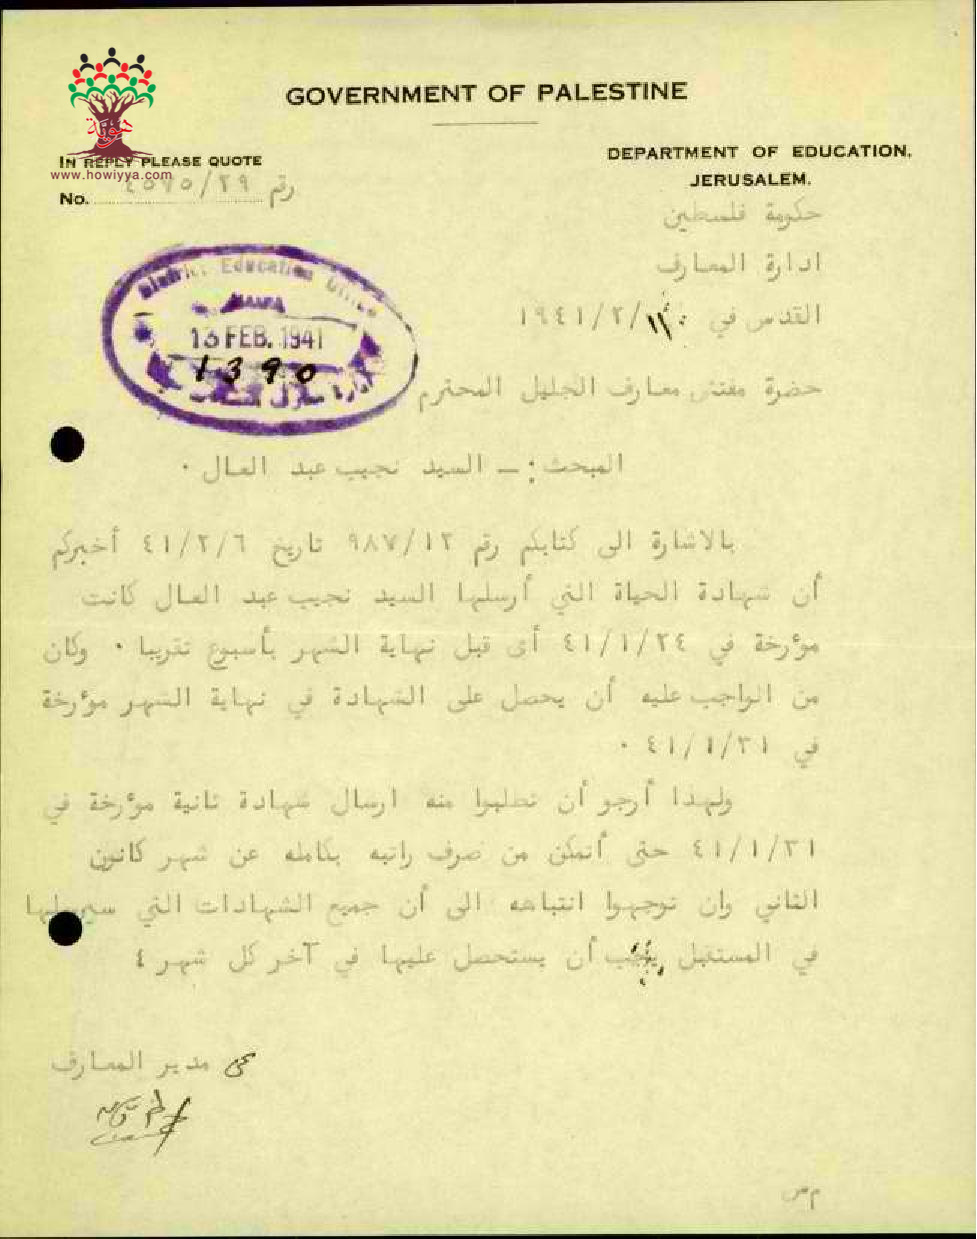 GOVERNMENT OF PALESTINE
هوية
IN REPLY PLEASE QUOTE
www.howiyya.com
No. رقم ٤٥٧٥/٢٩
DEPARTMENT OF EDUCATION,
JERUSALEM.
حكومة فلسطين
ادارة المعارف
القدس في ١١/٢/١٩٤١
District Education Office
HAIFA
13 FEB. 1941
1390
حضرة مفتش معارف الجليل المحترم
المبحث : ـ السيد نجيب عبد العال ٠
بالاشارة الى كتابكم رقم ٩٨٧/١٢ تاريخ ٤١/٢/٦ أخبركم
أن شهادة الحياة التي أرسلها السيد نجيب عبد العال كانت
مؤرخة في ٤١/١/٢٤ أى قبل نهاية الشهر بأسبوع تقريبا ٠ وكان
من الواجب عليه أن يحصل على الشهادة في نهاية الشهر مؤرخة
في ٤١/١/٣١ ٠
ولهذا أرجو أن تطلبوا منه ارسال شهادة ثانية مؤرخة في
٤١/١/٣١ حتى أتمكن من صرف راتبه بكامله عن شهر كانون
الثاني وان توجهوا انتباهه الى أن جميع الشهادات التي سيرسلها
في المستقبل يجب أن يستحصل عليها في آخر كل شهر ٤
عن مدير المعارف
م ص